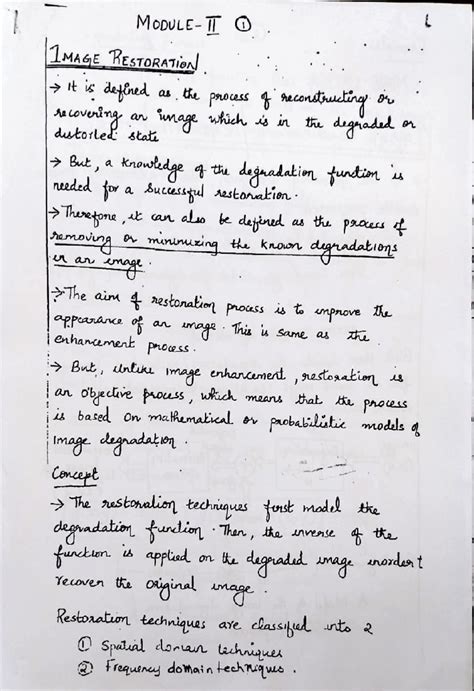 MODULE-II ①
IMAGE RESTORATION
→ It is defined as the process of reconstructing or
recovering an image which is in the degraded or
distorted state
→ But, a knowledge of the degradation function is
needed for a successful restoration.
→ Therefore, it can also be defined as the process of
removing or minimizing the known degradations
in an image.
→ The aim of restoration process is to improve the
appearance of an image. This is same as the
enhancement process.
→ But, unlike image enhancement, restoration is
an objective process, which means that the process
is based on mathematical or probabilistic models of
image degradation.
Concept
→ The restoration techniques first model the
degradation function. Then, the inverse of the
function is applied on the degraded image inorder t
recover the original image.
Restoration techniques are classified into 2
① Spatial domain techniques
② Frequency domain techniques.